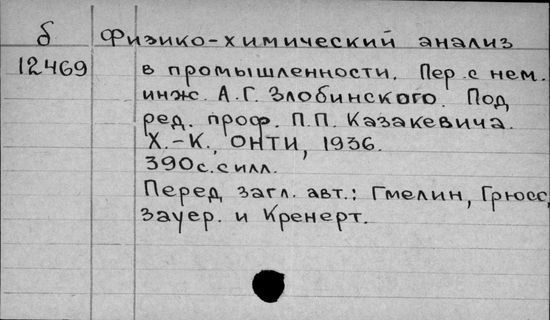 б Физико-химический анализ
12469 в промышленности. Пер. с нем.
инж. А.Г. Злобинского. Под
ред. проф. П.П. Казакевича.
Х.-К., ОНТИ, 1936.
390с. с илл.
Перед загл. авт.: Гмелин, Грюсс,
Зауер. и Кренерт.